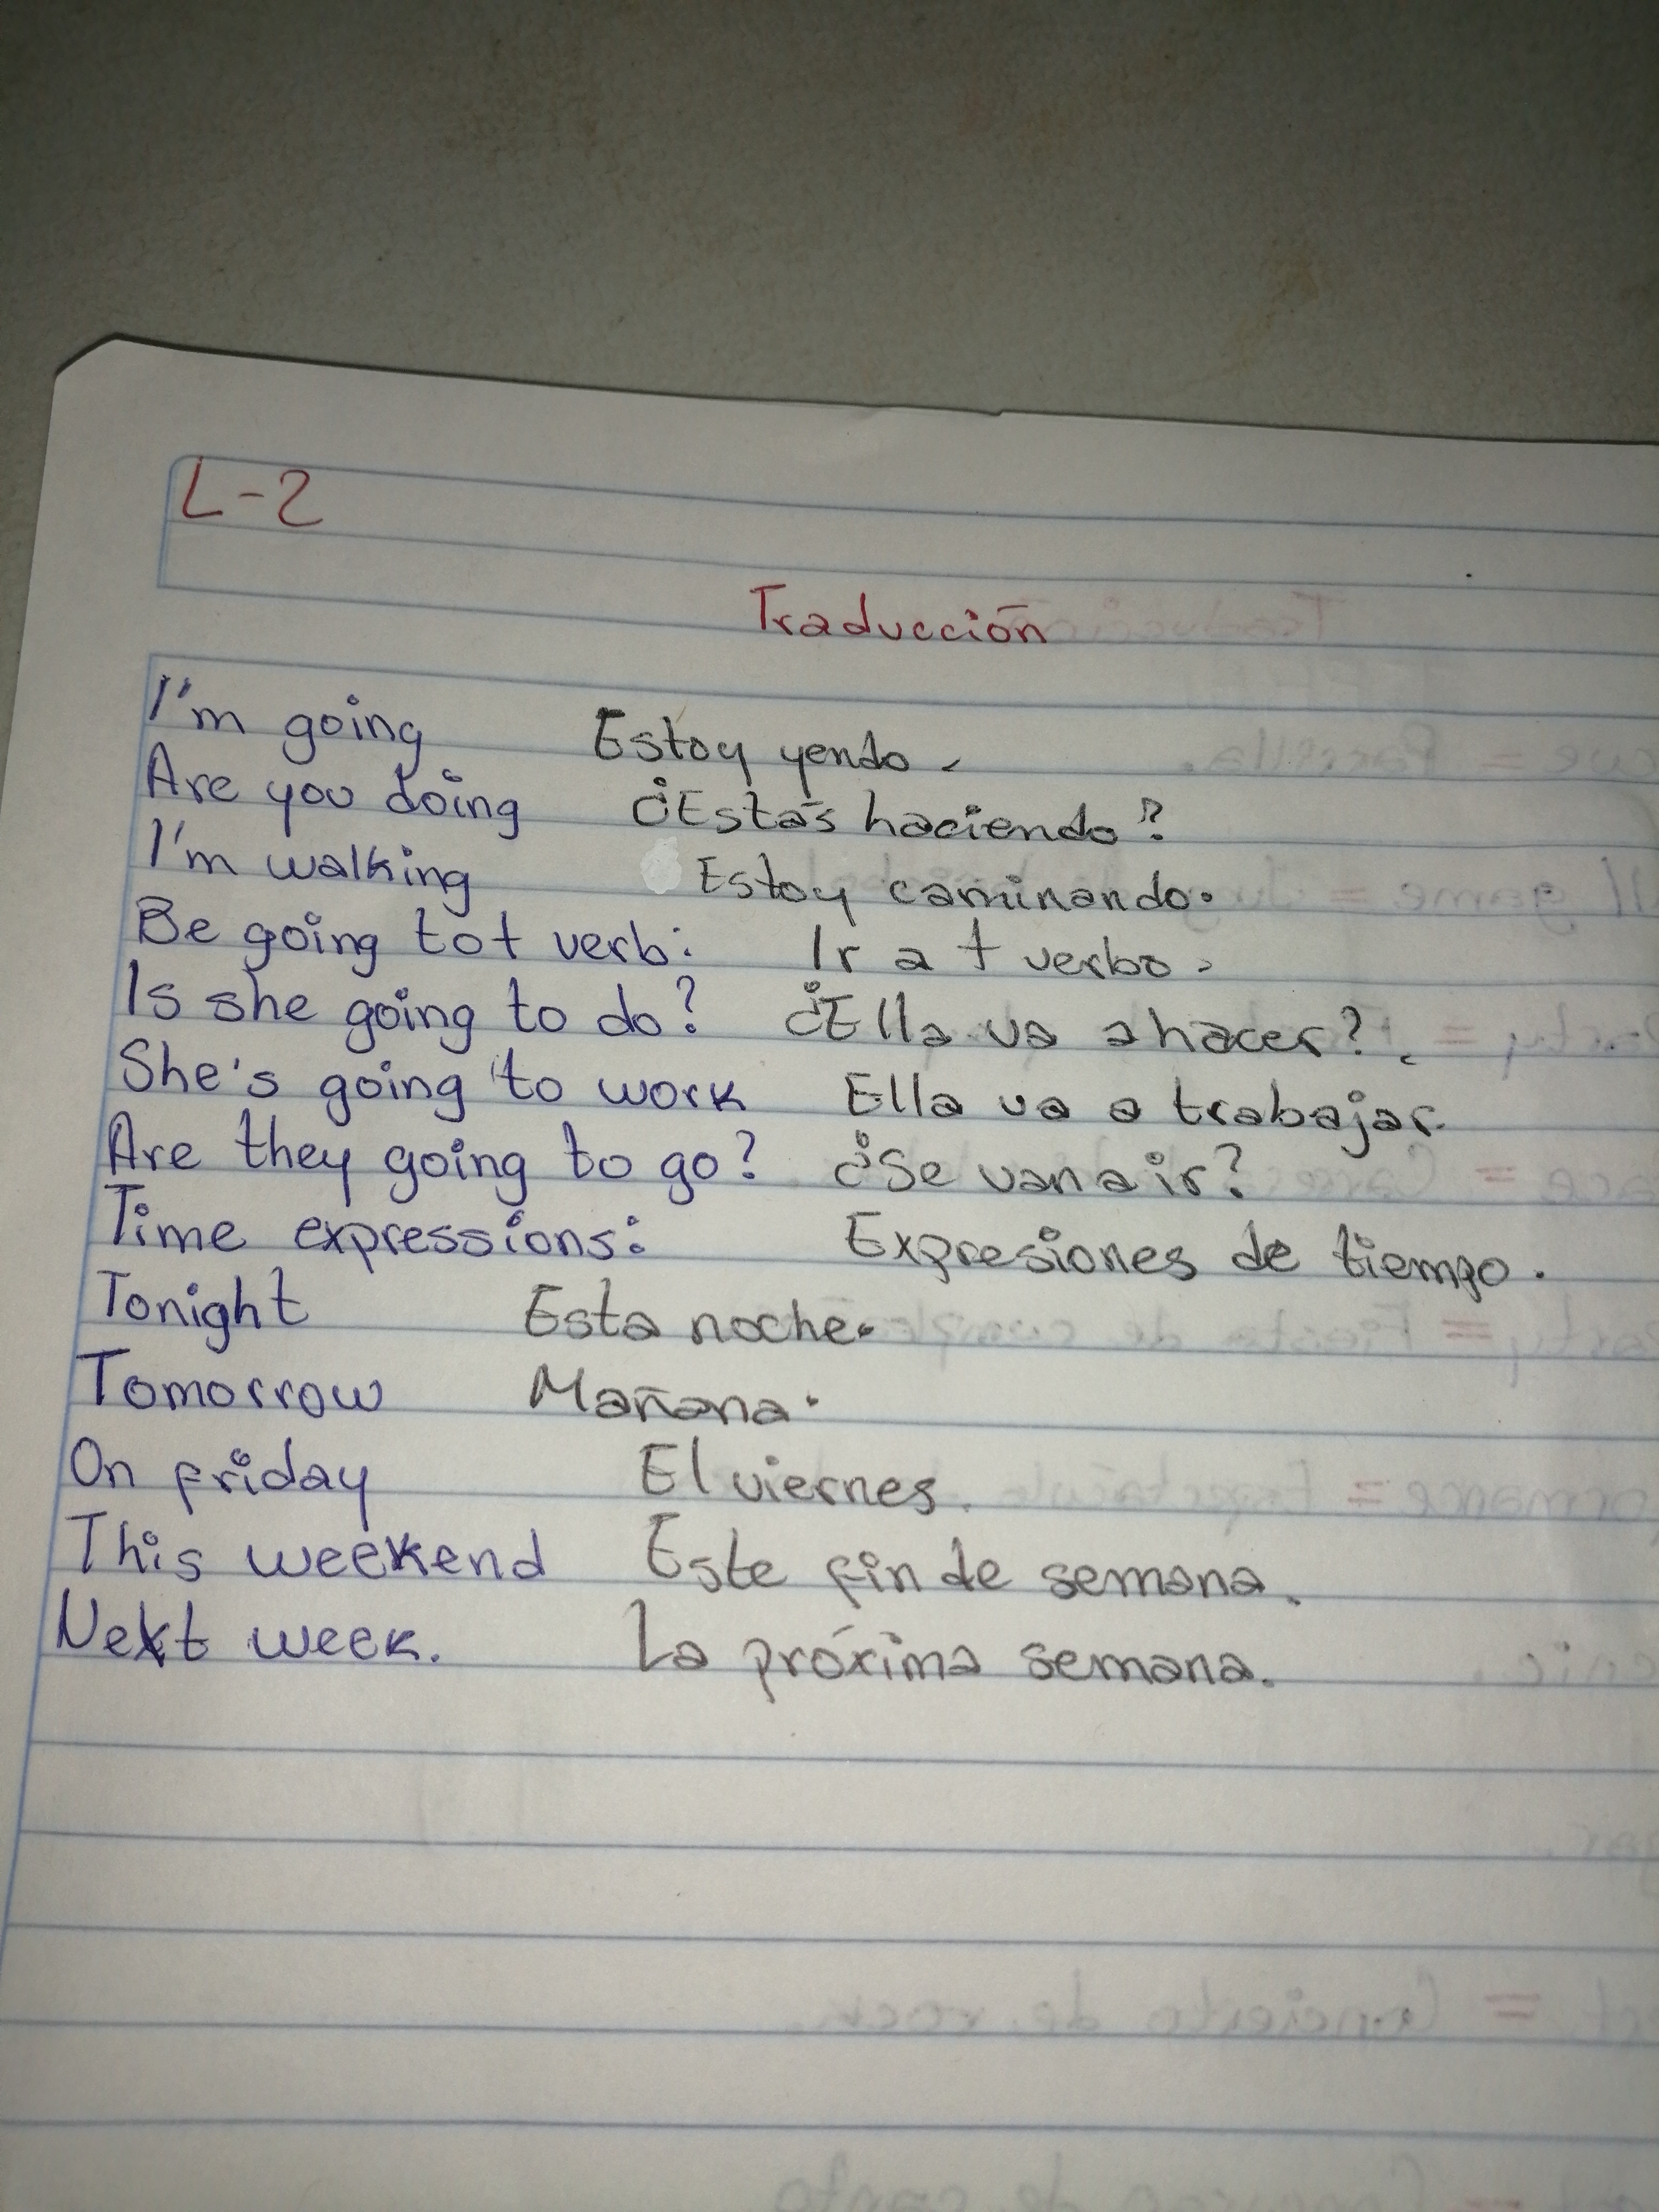 L-2
Traducción
I'm going Estoy yendo.
Are you doing ¿Estás haciendo?
I'm walking Estoy caminando.
Be going to + verb: Ir a + verbo.
Is she going to do? ¿Ella va a hacer?.
She's going to work Ella va a trabajar.
Are they going to go? ¿Se van a ir?
Time expressions: Expresiones de tiempo.
Tonight Esta noche.
Tomorrow Mañana.
On friday El viernes.
This weekend Este fin de semana.
Next week. La próxima semana.